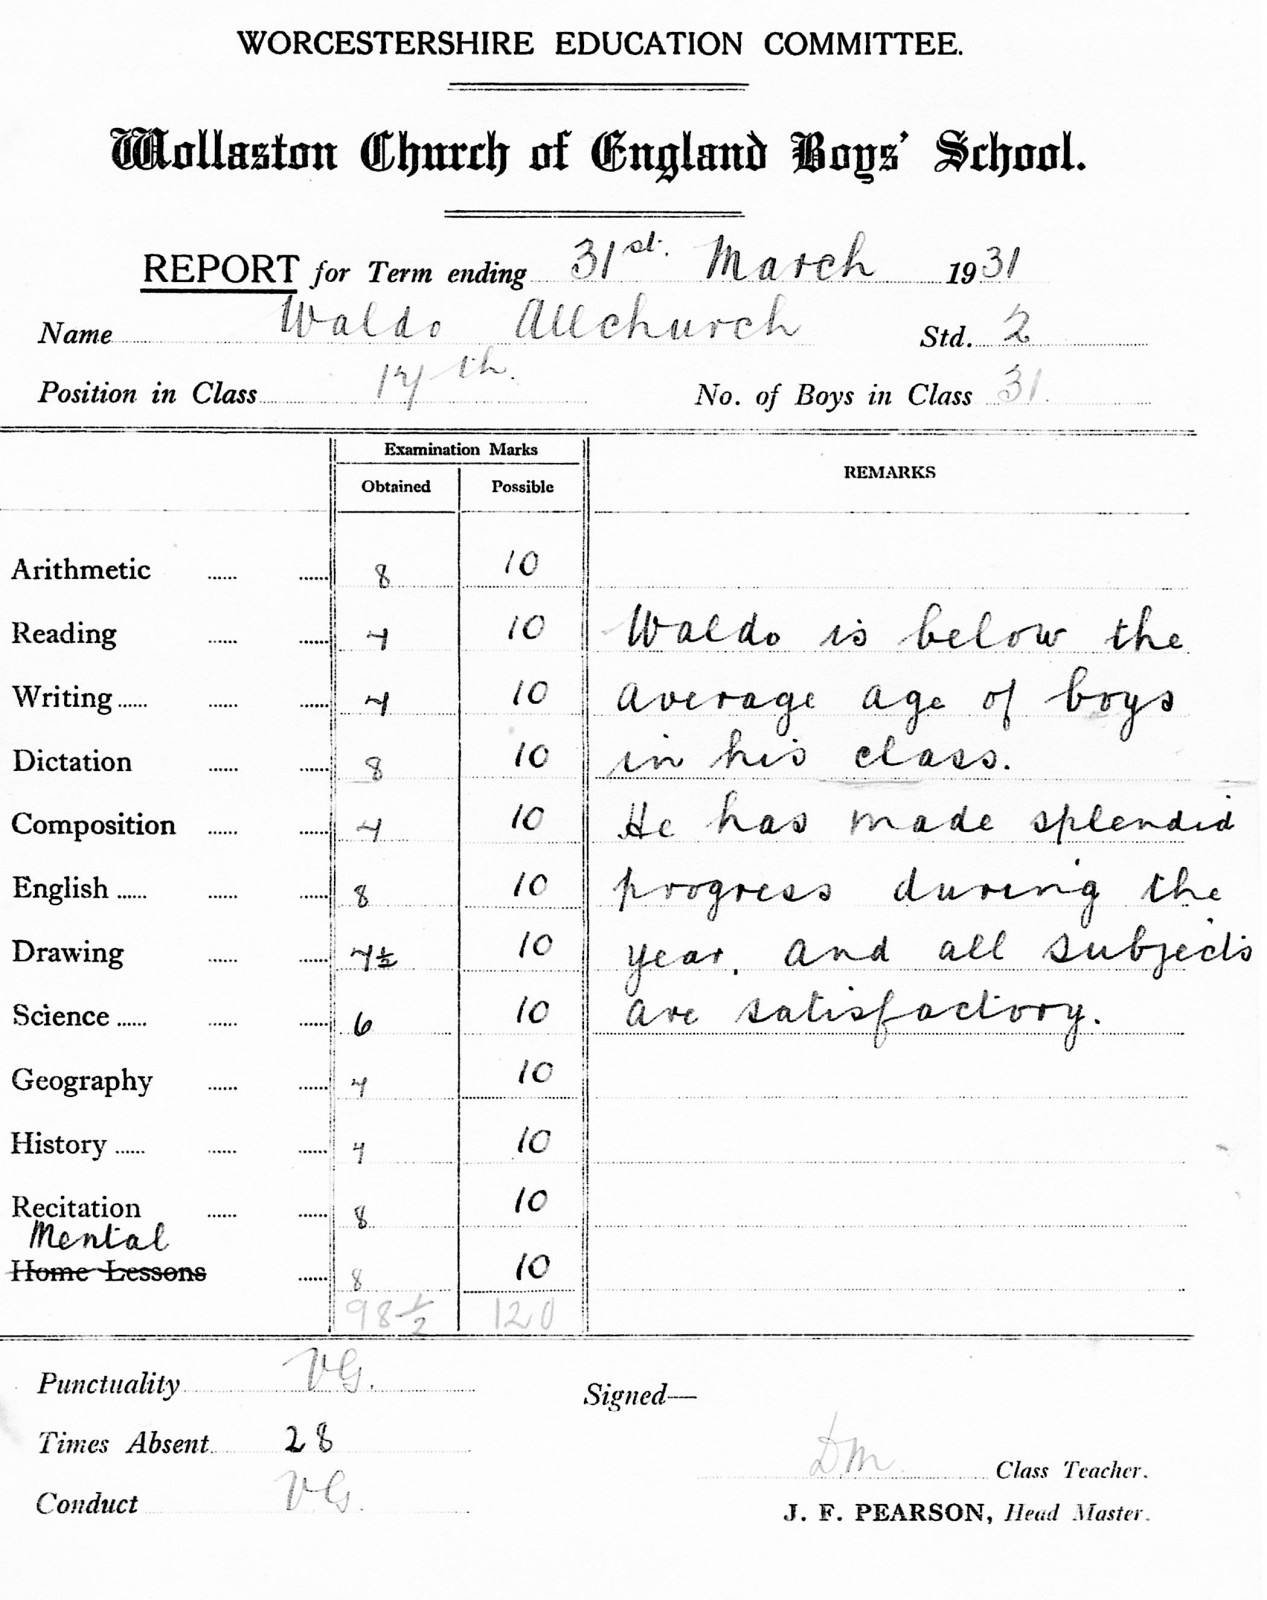 WORCESTERSHIRE EDUCATION COMMITTEE.
Wollaston Church of England Boys' School.
REPORT for Term ending 31st. March 1931
Name Waldo Allchurch Std. 2
Position in Class 17th. No. of Boys in Class 31.
Examination Marks
Obtained Possible REMARKS
Arithmetic 8 10
Reading 7 10 Waldo is below the
Writing 7 10 average age of boys
Dictation 8 10 in his class.
Composition 7 10 He has made splendid
English 8 10 progress during the
Drawing 7½ 10 year, and all subjects
Science 6 10 are satisfactory.
Geography 7 10
History 7 10
Recitation 8 10
Mental
Home Lessons 8 10
98½ 120
Punctuality VG.
Signed—
Times Absent 28
DM Class Teacher.
Conduct VG.
J. F. PEARSON, Head Master.